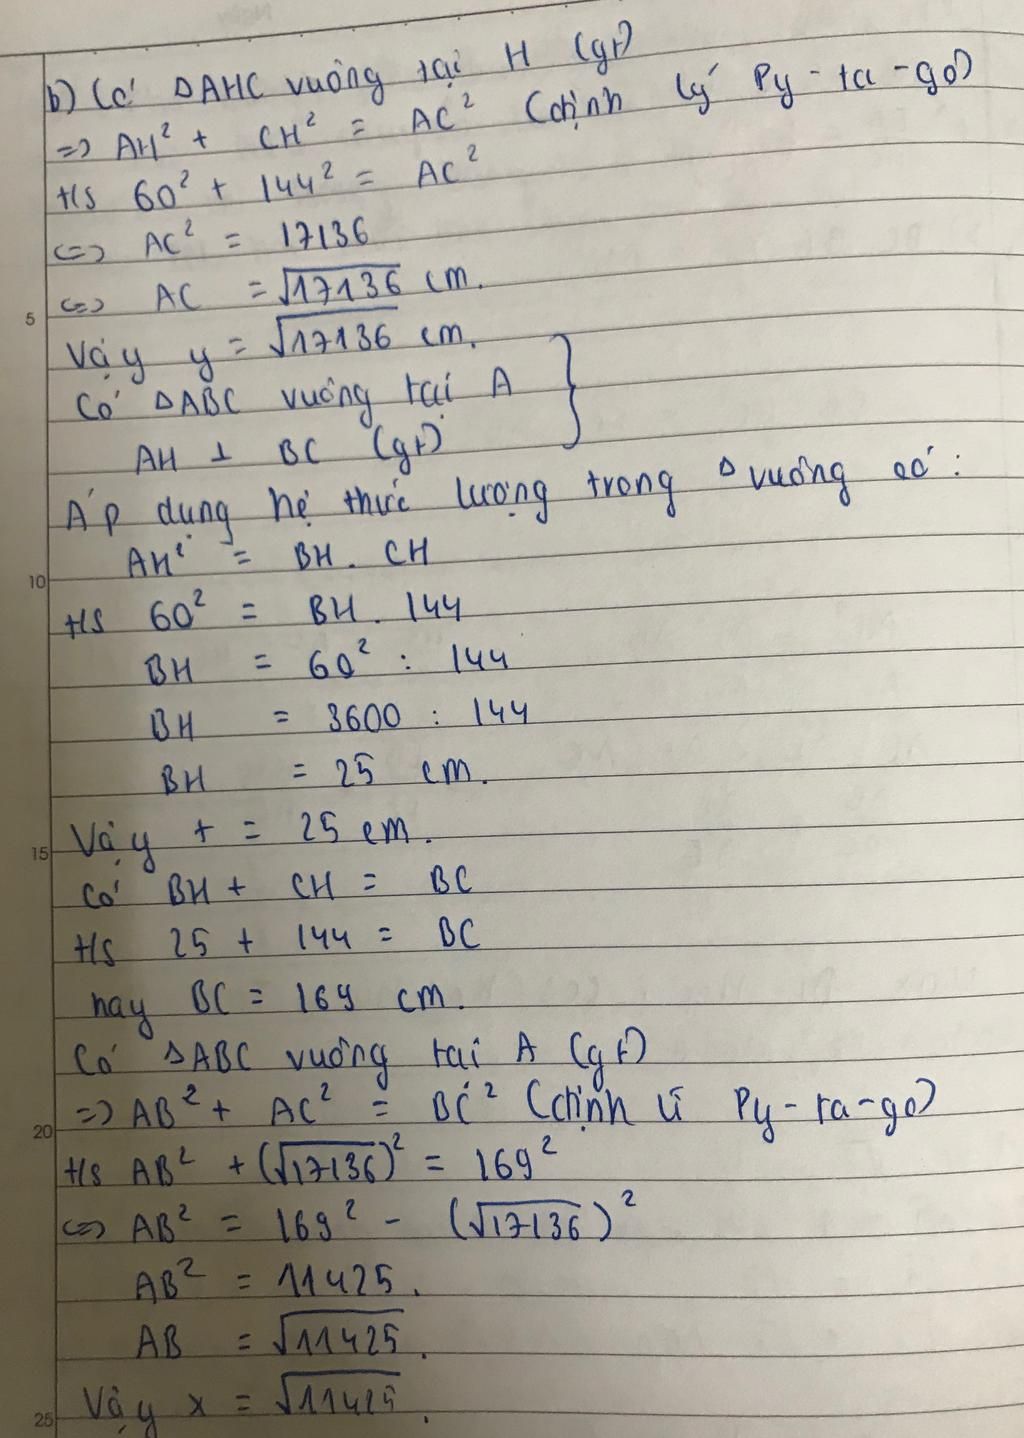 b) Có ΔAHC vuông tại H (gt)
=> AH² + CH² = AC² (định lý Py-ta-go)
t/s 60² + 144² = AC²
<=> AC² = 17136
<=> AC = √17136 cm.
5
Vậy y = √17136 cm.
Có ΔABC vuông tại A }
AH ⊥ BC (gt)
Áp dụng hệ thức lượng trong Δ vuông có:
AH² = BH . CH
10
t/s 60² = BH . 144
BH = 60² : 144
BH = 3600 : 144
BH = 25 cm.
Vậy t = 25 cm.
15
Có BH + CH = BC
t/s 25 + 144 = BC
hay BC = 169 cm.
Có ΔABC vuông tại A (gt)
=> AB² + AC² = BC² (định lí Py-ta-go)
20
t/s AB² + (√17136)² = 169²
<=> AB² = 169² - (√17136)²
AB² = 11425.
AB = √11425.
Vậy x = √11425.
25